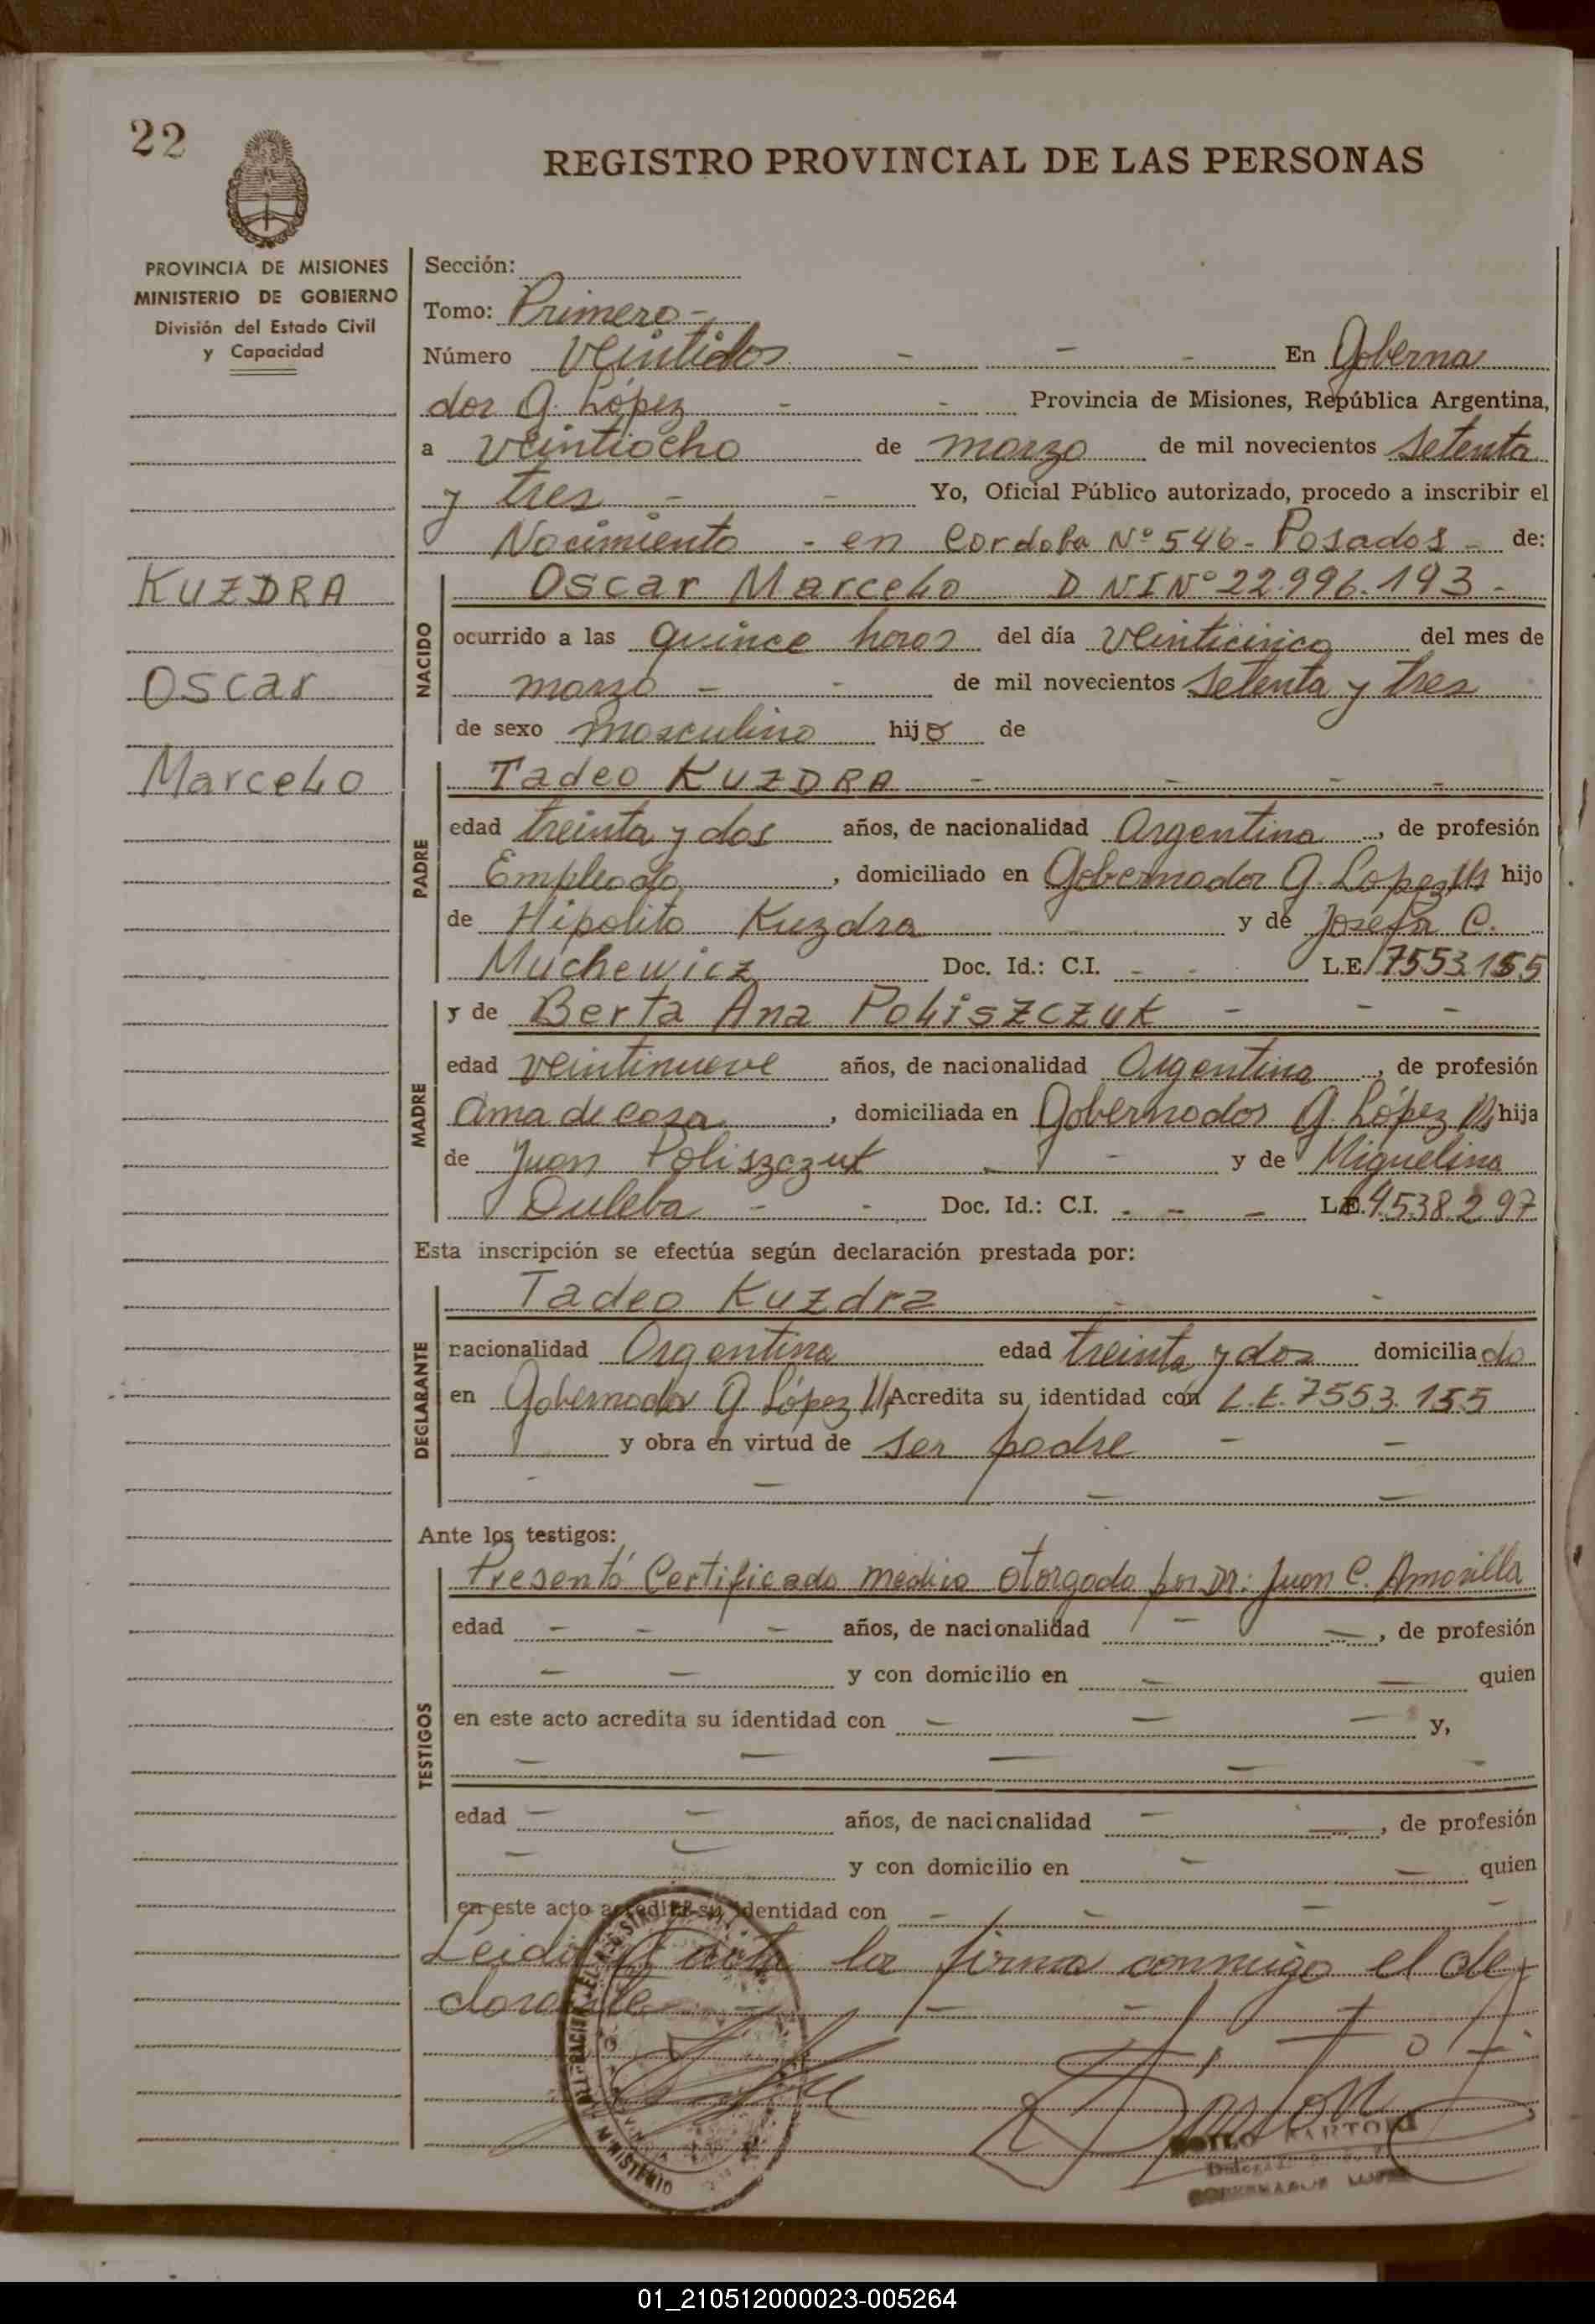 22
REGISTRO PROVINCIAL DE LAS PERSONAS
PROVINCIA DE MISIONES
MINISTERIO DE GOBIERNO
División del Estado Civil
y Capacidad
KUZDRA
Oscar
Marcelo
Sección:
Tomo: Primero -
Número Veintidos - - - En Goberna
dor G. López - - Provincia de Misiones, República Argentina,
a veintiocho de marzo de mil novecientos setenta
y tres - - Yo, Oficial Público autorizado, procedo a inscribir el
Nacimiento - en Cordoba Nº 546 - Posadas - de:
NACIDO
Oscar Marcelo DNI Nº 22.996.193 -
ocurrido a las quince horas del día veinticinco del mes de
marzo - - de mil novecientos setenta y tres
de sexo masculino hijo de
PADRE
Tadeo KUZDRA - - - -
edad treinta y dos años, de nacionalidad Argentina, de profesión
Empleado, domiciliado en Gobernador G. Lopez hijo
de Hipolito Kuzdra y de Josefa C.
Muchewicz Doc. Id.: C.I. - - L.E. 7553.155
MADRE
y de Berta Ana Poliszczuk - - -
edad veintinueve años, de nacionalidad Argentina, de profesión
Ama de casa, domiciliada en Gobernador G. López hija
de Juan Poliszczuk - - y de Miguelina
Duleba - - Doc. Id.: C.I. - - - L.E. 4.538.297
Esta inscripción se efectúa según declaración prestada por:
DECLARANTE
Tadeo Kuzdra - -
nacionalidad Argentina edad treinta y dos domiciliado
en Gobernador G. López Acredita su identidad con L.E. 7553.155
y obra en virtud de ser padre - -
- - - -
Ante los testigos:
TESTIGOS
Presentó Certificado médico otorgado por Dr: Juan C. Amarilla
edad - - - años, de nacionalidad - -, de profesión
- - y con domicilio en - - quien
en este acto acredita su identidad con - - - y,
- - - - -
edad - - años, de nacicnalidad - -, de profesión
- - y con domicilio en - - quien
en este acto acredita su identidad con - - - -
Leida el acta la firma conmigo el de
clarante - - -
MINISTERIO
01_210512000023-005264